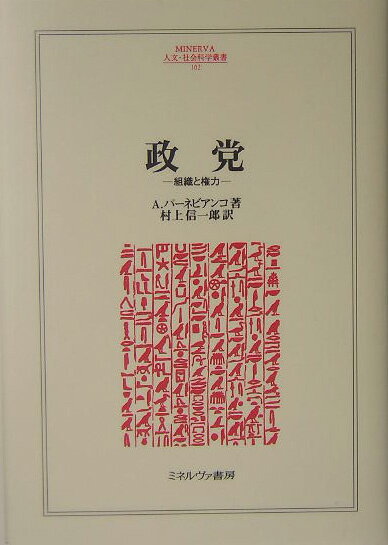 MINERVA
人文・社会科学叢書
102
政党
―組織と権力―
A.パーネビアンコ著
村上信一郎訳
ミネルヴァ書房